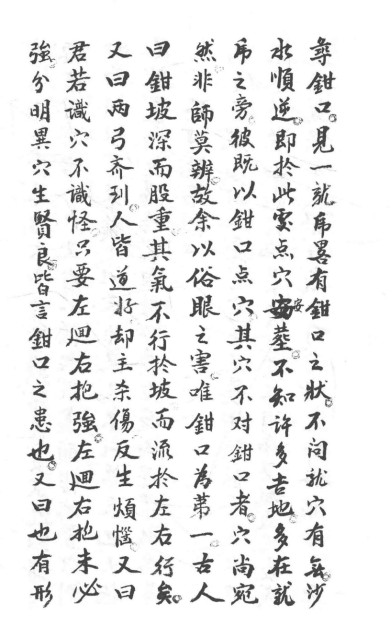 尋鉗口見一就帋畧有鉗口之狀不问就穴有無沙
水順逆即於此处点穴安塟不知许多吉地多在就
帋之旁彼既以鉗口点穴其穴不对鉗口者穴尚宛
然非師莫辨故余以俗眼之害唯鉗口為苐一古人
曰鉗坡深而股重其氣不行於坡而流於左右行矣
又曰兩弓齐到人皆道好却主杀傷反生煩惱又曰
君若識穴不識怪只要左廻右抱強左廻右抱未必
強分明異穴生賢良皆言鉗口之患也又曰也有形